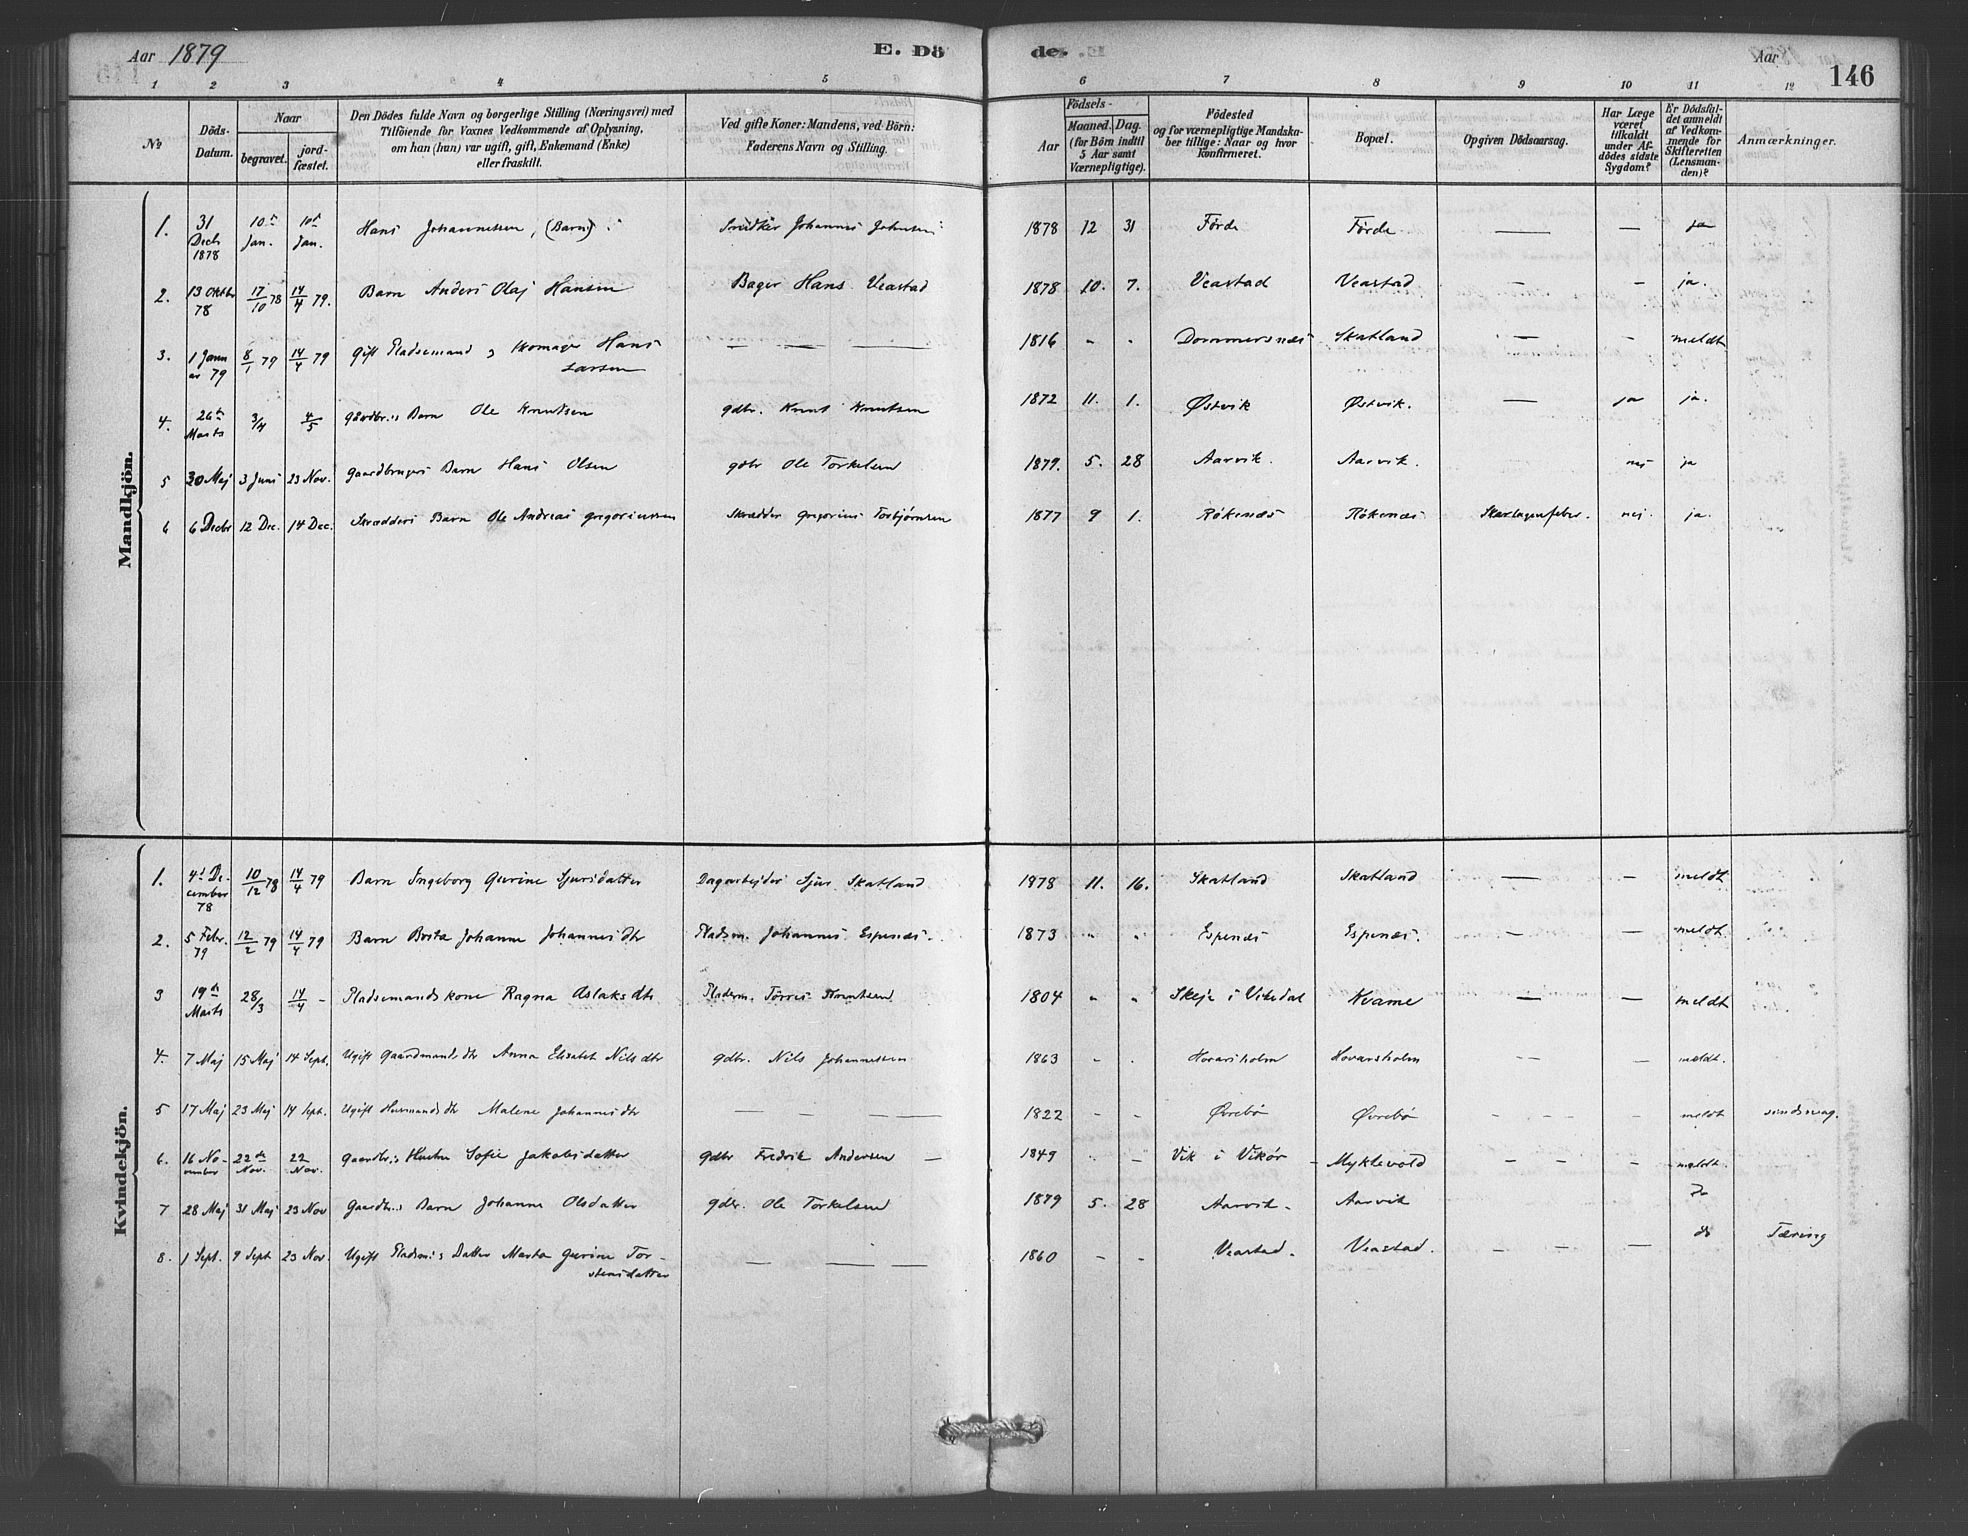 Aar 1879 E. Dö de. Aar 146
1 2 3 4 5 6 7 8 9 10 11 12
No
Döds-Datum.
Naar
begravet.
jordfæstet.
Den Dödes fulde Navn og borgerlige Stilling (Næringsvei) med
Tilföiende for Voxnes Vedkommende af Oplysning,
om han (hun) var ugift, gift, Enkemand (Enke)
eller fraskilt.
Ved gifte Koner: Mandens, ved Börn:
Faderens Navn og Stilling.
Födsels-
Aar
Maaned. Dag.
(for Börn indtil
5 Aar samt
Værnepligtige).
Födested
og for værnepligtige Mandska-
ber tillige: Naar og hvor
Konfirmeret.
Bopæl.
Opgiven Dödsaarsag.
Har Læge
været
tilkaldt
under Af-
dödes sidste
Sygdom?
Er Dödsfal-
det anmeldt
af Vedkom-
mende for
Skifteretten
(Lensman-
den)?
Anmærkninger.
Mandkjön.
1. 31 Decb 1878 10de Jan. 10de Jan. Hans Johannessen, (Barn) Snidker Johannes 1878 12 31 Förde Förde — — ja
2. 13 Oktbr 78 17/10 78 14/4 79. Barn Anders Olaj Hansen Bager Hans Veastad 1878 10. 7. Veastad Veastad — — ja.
3. 1 Januar 79 8/1 79 14/4 79 Gift Pladsemand og Skomager Hans Larsen — — — 1816 - - Dommersnæs Skatland — — meldt
4. 26de Marts 3/4 4/5 Gaardbr.s Barn Ole Knutsen gdbr. Knut Knutsen 1872 11. 1. Østvik Østvik. — ja ja.
5 30 Maj 3 Juni 23 Nov. Gaardbrugers Barn Hans Olsen gdbr Ole Torkelsen 1879. 5. 28 Aarvik. Aarvik. nej ja
6 6 Decbr 12 Dec. 14 Dec. Skrædders Barn Ole Andreas Gregoriussen Skrædder Gregorius Torbjørnsen 1877 9 1. Rökenæs Rökenæs Skarlagensfeber. nej. ja.
Kvindekjön.
1. 4de December 78 10/12 78 14/4 79 Barn Ingeborg Gurine Sjursdatter Dagarbejder Sjur Skatland 1878 11. 16. Skatland Skatland — — meldt
2. 5 Febr. 79 12/2 79 14/4 79 Barn Brita Johanne Johannesdtr Pladsm. Johannes Espenæs. 1873 - - Espenæs Espenæs. — — meldt
3 19de Marts 28/3 14/4 - Pladsemandskone Ragna Aslaksdtr Pladsm. Tørres Knutsen 1804 - - Skeje i Vikedal Kvame — — meldt
4. 7 Maj 15 Maj 14 Sept. Ugift Gaardmandsdtr Anna Elisabet Nilsdtr gdbr. Nils Johannessen 1863 - - Hovarsholm Hovarsholm -- — meldt.
5 17 Maj 23 Maj 14 Sept. Ugift Husmandsdtr Malene Johannesdtr — — — 1822 - - Øvrebö Øvrebö - - - - meldt sindssvag.
6. 16 November 22de Nov. 22 Nov. Gaardbr.s Hustru Sofie Jakobsdatter gdbr Fredrik Andersen — 1849 - - Vik i Vikör - Myklevold - - - - meldt.
7 28 Maj 31 Maj 23 Nov Gaardbr.s Barn Johanne Olsdatter gdbr. Ole Torkelsen 1879 5. 28 Aarvik - Aarvik Ja
8. 1 Sept. 9 Sept 23 Nov. Ugift Pladsm.s Datter Marta Gurine Torstensdatter — — — 1860 - - Veastad - Veastad. - - — do Tæring